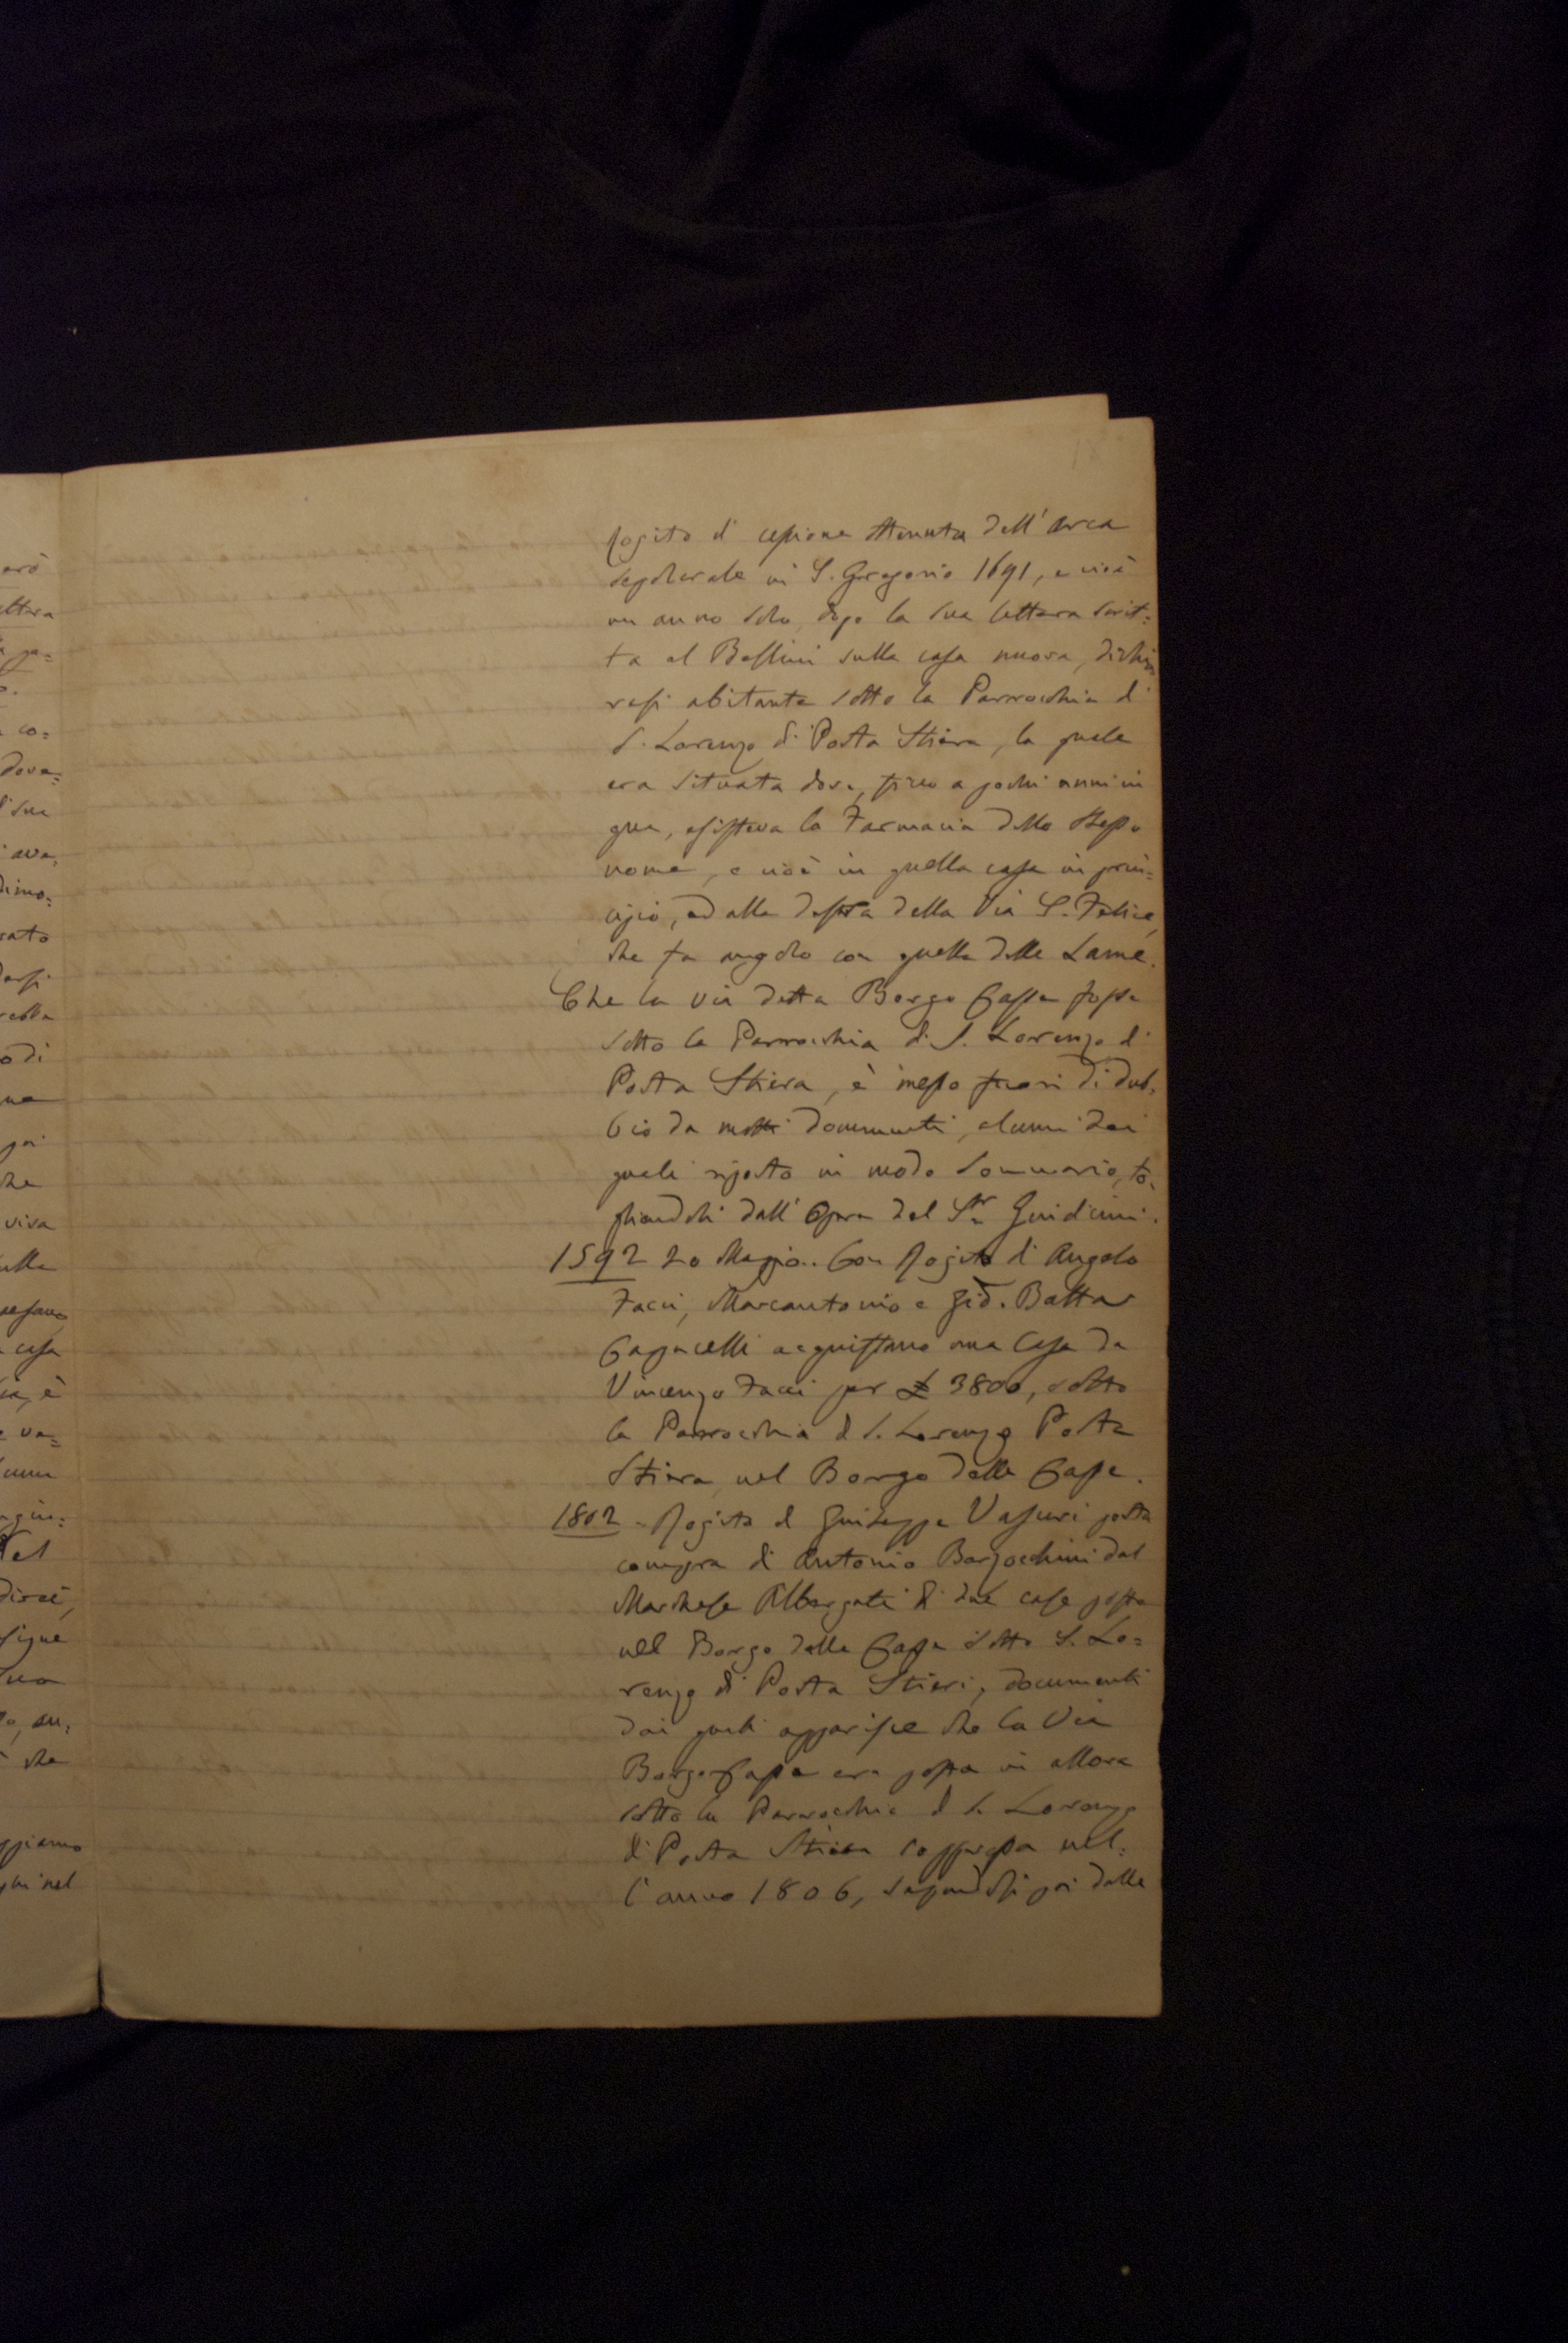 Rogito di cessione ottenuta dell'Arca
sepolcrale in S. Gregorio 1691, e cioè
un anno solo, dopo la sua lettera scrit=
ta al Bellini sulla casa nuova, dichia
rasi abitante sotto la Parrocchia di
S. Lorenzo di Porta Stiera, la quale
era situata dove, fino a pochi anni in
qua, esisteva la Farmacia dello stesso
nome, e cioè in quella casa in prin=
cipio, ed alla destra della Via S. Felice,
che fa angolo con quella delle Lame.
Che la via detta Borgo Casse fosse
sotto la Parrocchia di S. Lorenzo di
Porta Stiera, è messo fuori di dub=
bio da molti documenti, alcuni dei
quali riporto in modo sommario, to=
gliendoli dall'Opera del Sr Guidicini.
1592 20 Maggio. Con Rogito di Angelo
Facci, Marcantonio e Gio. Battar
Capacelli acquistano una Casa da
Vincenzo Facci per £ 3800, sotto
la Parrocchia di S. Lorenzo Porta
Stiera, nel Borgo delle Casse.
1802 - Rogito di Guiseppe Vasuri porta
compra di Antonio Borzocchini dal
Marchese Albergati di due case poste
nel Borgo delle Casse sotto S. Lo=
renzo di Porta Stieri, documenti
dai quali apparisce che la Via
Borgo Casse era posta in allora
sotto la Parrocchia di S. Lorenzo
di Porta Stiera soppressa nel=
l'anno 1806, sapendosi poi dalle
erò
ettera
co=
dove=
di sua
dimo=
darsi
o di
poi
che
viva
casa
è
va=
del
che
ghi nel